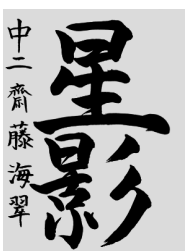 星影
中二 齋藤海翠